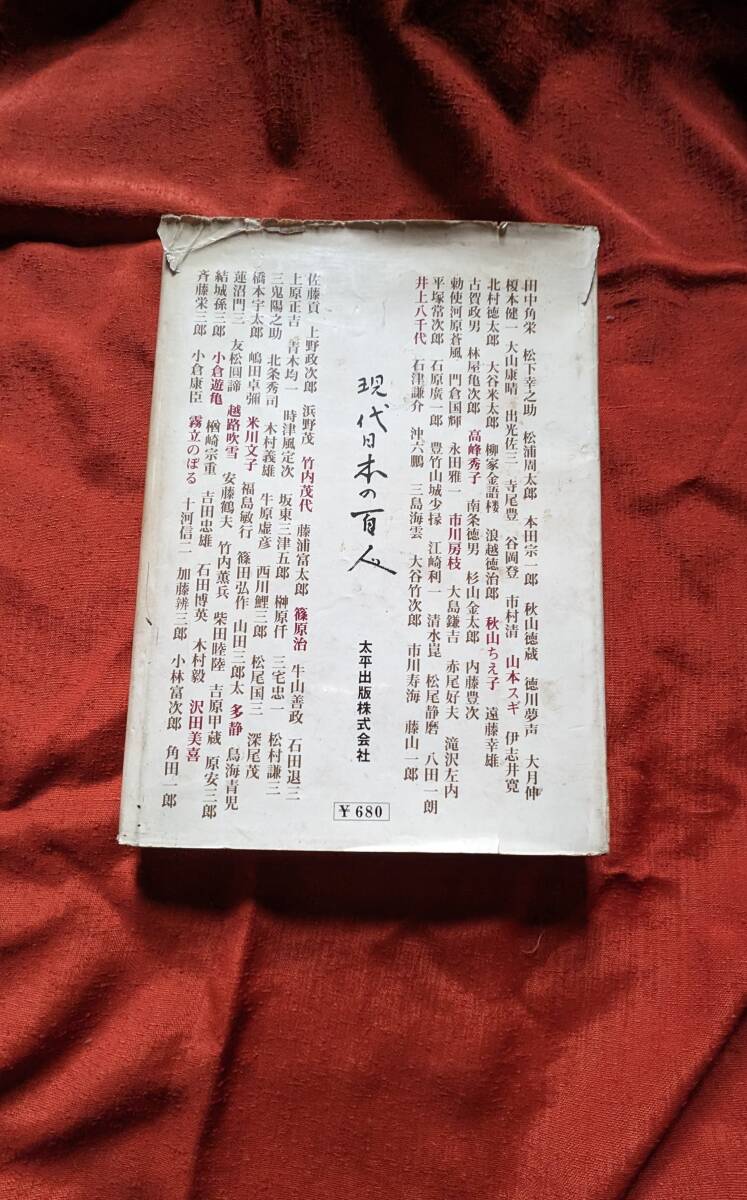 田中角栄 松下幸之助 松浦周太郎 本田宗一郎 秋山徳蔵 徳川夢声 大月伸
榎本健一 大山康晴 出光佐三 寺尾豊 谷岡登 市村清 山本スギ 伊志井寛
北村徳太郎 大谷米太郎 柳家金語楼 浪越徳治郎 秋山ちえ子 遠藤幸雄
古賀政男 林屋亀次郎 高峰秀子 南条徳男 杉山金太郎 内藤豊次
勅使河原蒼風 門倉国輝 永田雅一 市川房枝 大島鎌吉 赤尾好夫 滝沢左内
平塚常次郎 石原廣一郎 豊竹山城少掾 江崎利一 清水崑 松尾静磨 八田一朗
井上八千代 石津謙介 沖六鵬 三島海雲 大谷竹次郎 市川寿海 藤山一郎
現代日本の百人
太平出版株式会社
佐藤貢 上野政次郎 浜野茂 竹内茂代 藤浦富太郎 篠原治 牛山善政 石田退三
上原正吉 青木均一 時津風定次 坂東三津五郎 榊原仟 三宅忠一 松村謙三
三鬼陽之助 北条秀司 木村義雄 牛原虚彦 西川鯉三郎 松尾国三 深尾茂
橋本宇太郎 嶋田卓彌 米川文子 福島敏行 篠田弘作 山田三郎太 多静 鳥海青児
蓮沼門三 友松圓諦 越路吹雪 安藤鶴夫 竹内薫兵 柴田睦陸 吉原甲蔵 原安三郎
結城孫三郎 小倉遊亀 楢崎宗重 吉田忠雄 石田博英 木村毅 沢田美喜
斉藤栄三郎 小倉康臣 霧立のぼる 十河信二 加藤辨三郎 小林富次郎 角田一郎
¥680